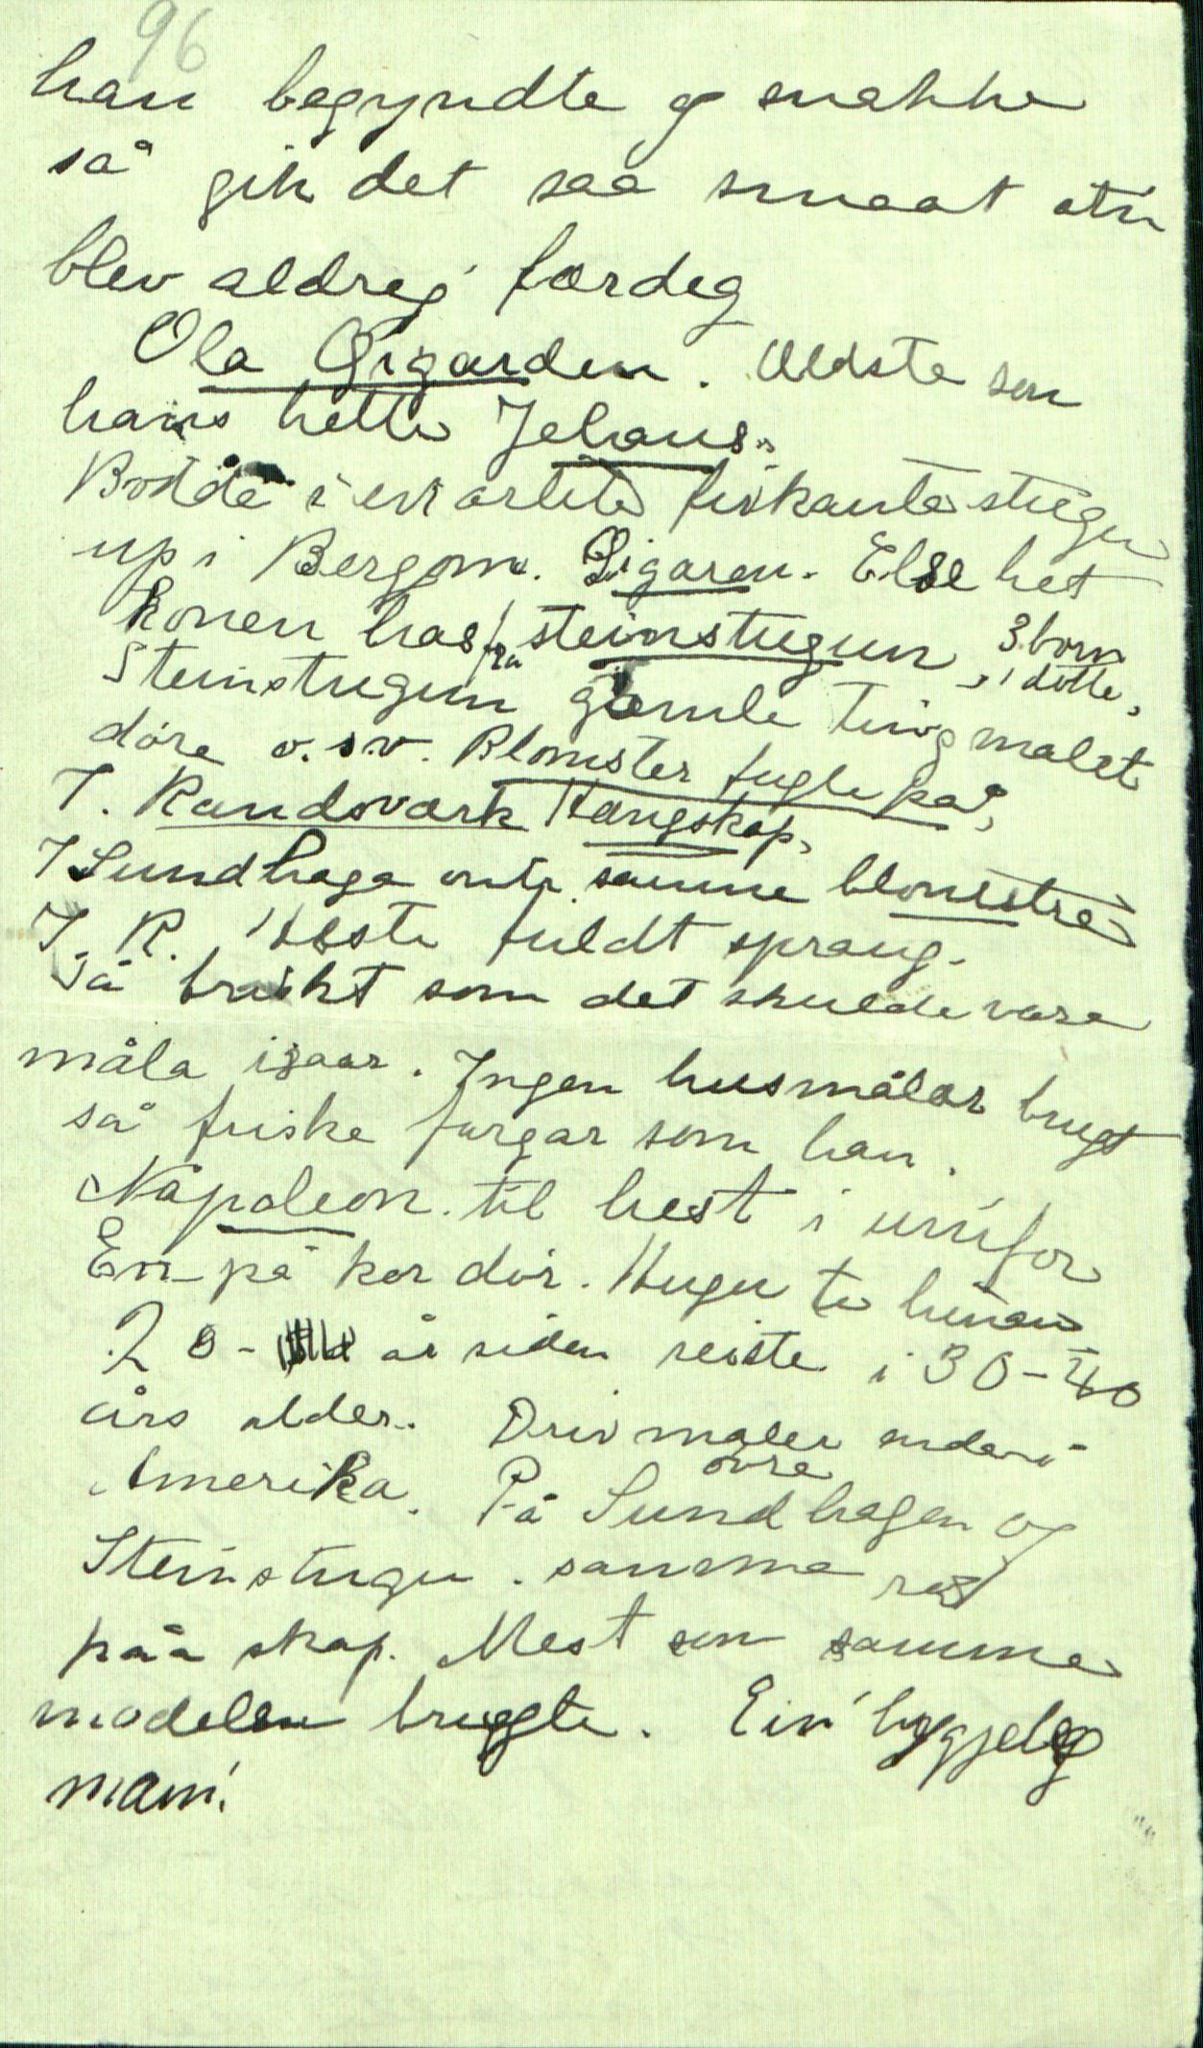 96
han begyndte og snakke
så gik det saa smaat at'n
blev aldrig færdeg
Ola Qrigarden. Ældste son
hans hette Jehans.
Bodde i ei firkante stugu
up i Bergom. Else het
konen has fra steinstugun, 3 born, 1 dotte,
Steinstugun gamle ting malet
döre o.s.v. Blomster fugle på,
I. Randsværk Hengskap,
I Sundhaga samme blomstre
I. R. Heste fuldt sprang.
Så brukt som det skulde være
måla isaar. Ingen husmålar brugt
så friske fargar som han.
Napoleon til hest i unifor
En på kor dör. Hugu te
20- år siden reiste i 30-40
års alder. Driv maler enda i
Amerika. På övre Sundhagen og
Steinstugu. samme
påa skap. Mest den samme
modelen bruggte. Ein hyggjeleg
mann!